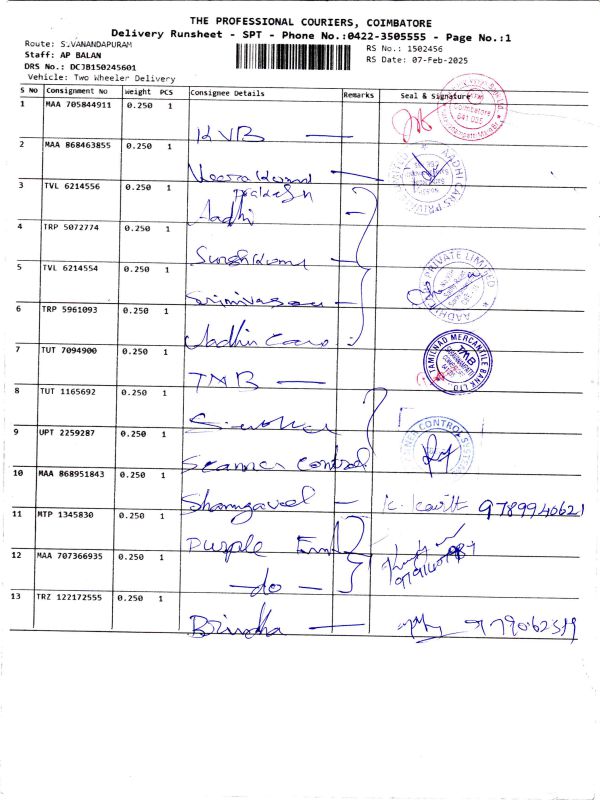 THE PROFESSIONAL COURIERS, COIMBATORE
Delivery Runsheet - SPT - Phone No.:0422-3505555 - Page No.:1
Route: S.VANANDAPURAM
RS No.: 1502456
Staff: AP BALAN
RS Date: 07-Feb-2025
DRS No.: DCJB150245601
Vehicle: Two Wheeler Delivery
S No Consignment No Weight PCS Consignee Details Remarks Seal & Signature
1 MAA 705844911 0.250 1 KVB
2 MAA 868463855 0.250 1
3 TVL 6214556 0.250 1 Aadhi
4 TRP 5072774 0.250 1
5 TVL 6214554 0.250 1 Srinivasan
6 TRP 5961093 0.250 1 Aadhi Cars
7 TUT 7094900 0.250 1 TMB
TAMILNAD MERCANTILE BANK LTD
TMB
8 TUT 1165692 0.250 1
9 UPT 2259287 0.250 1 Scanner Control
10 MAA 868951843 0.250 1 Shanmgaveel 9789940621
11 MTP 1345830 0.250 1 Purple
12 MAA 707366935 0.250 1 do
13 TRZ 122172555 0.250 1 Brindha